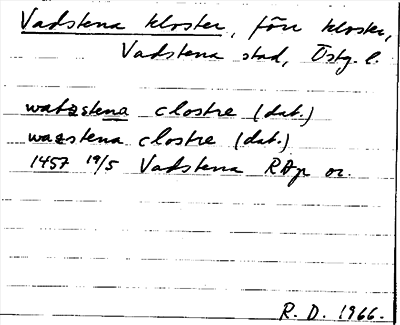 Vadstena kloster, förr kloster,
Vadstena stad, Östg. l.
watzstena clostre (dat.)
wazstena clostre (dat.)
1457 19/5 Vadstena RAp or.
R. D. 1966.